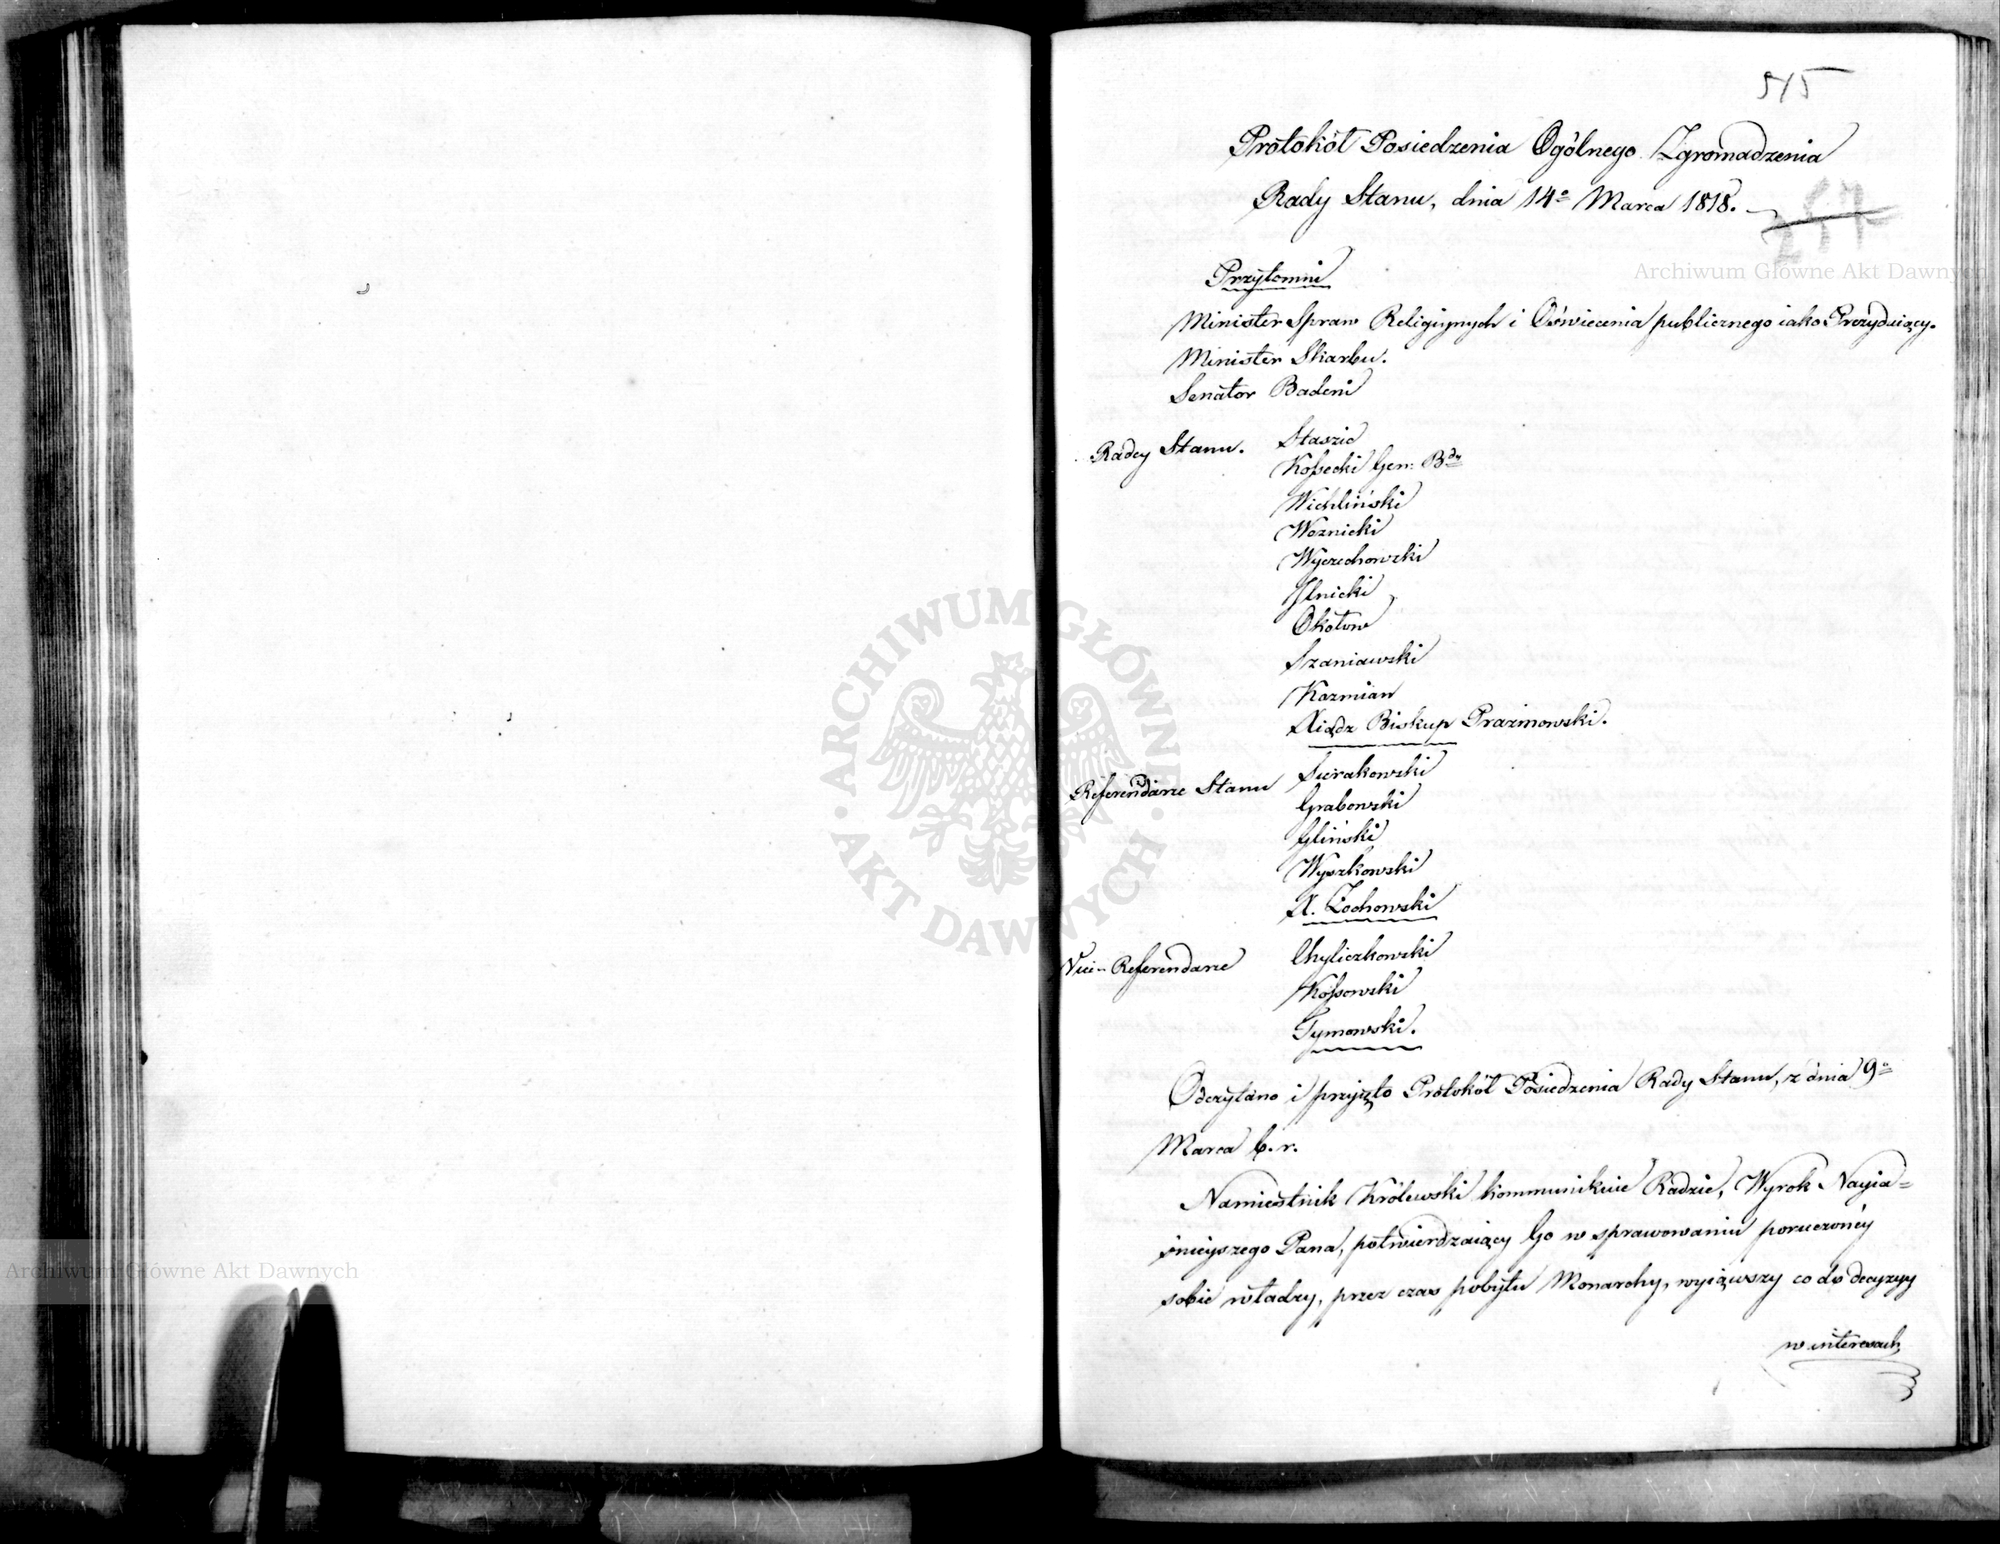 515
Protokół Posiedzenia Ogólnego Zgromadzenia
Rady Stanu, dnia 14º Marca 1818.
257
Przytomni
Minister Spraw Religijnych i Oświecenia publicznego iako Prezyduiący.
Minister Skarbu.
Senator Badeni
Radcy Stanu. Staszic
Kossecki Gen: Bdy
Wichliński
Woznicki
Wyczechowski
Ilnicki
Okołow
Szaniawski
Kozmian
Xiądz Biskup Prażmowski.
Referendarze Stanu Sierakowski
Grabowski
Gliński
Wyszkowski
X. Żochowski
Vice-Referendarze Chyliczkowski
Kossowski
Tymowski.
Odczytano i przyięto Protokół Posiedzenia Rady Stanu, z dnia 9º
Marca b. r.
Namiestnik Królewski kommunikuie Radzie, Wyrok Nayia=
śnieyszego Pana, potwierdzaiący Go w sprawowaniu poruczonéy
sobie władzy, przez czas pobytu Monarchy, wyiąwszy co do decyzyy
w interesach
Archiwum Główne Akt Dawnych
ARCHIWUM GŁÓWNE AKT DAWNYCH
Archiwum Główne Akt Dawnych